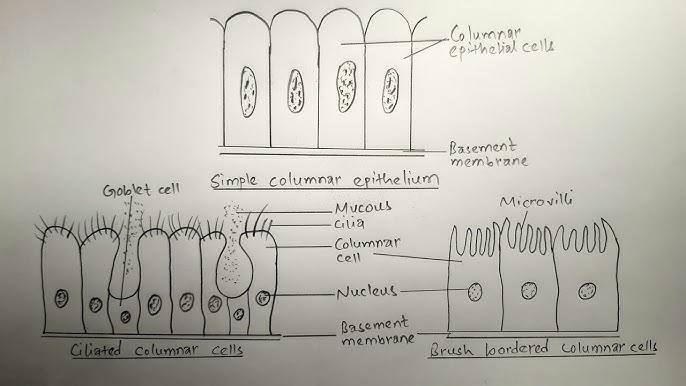 Columnar
epithelial cells
Basement
membrane
Simple columnar epithelium
Goblet cell
Mucous
Cilia
Columnar
cell
Nucleus
Basement
membrane
Ciliated columnar cells
Microvilli
Brush bordered Columnar cells